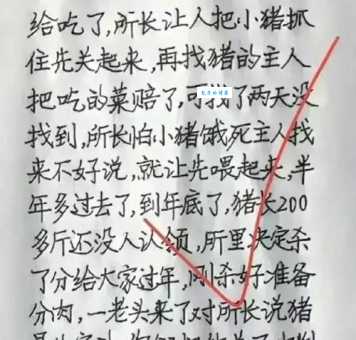 给吃了,所长让人把小猪抓
住先关起来,再找猪的主人
把吃的菜赔了,可找了两天没
找到,所长怕小猪饿死主人找
来不好说,就让先喂起来,半
年多过去了,到年底了,猪长200
多斤还没人认领,所里决定杀
了分给大家过年,刚杀好准备
分肉,一老头来了对所长说猪